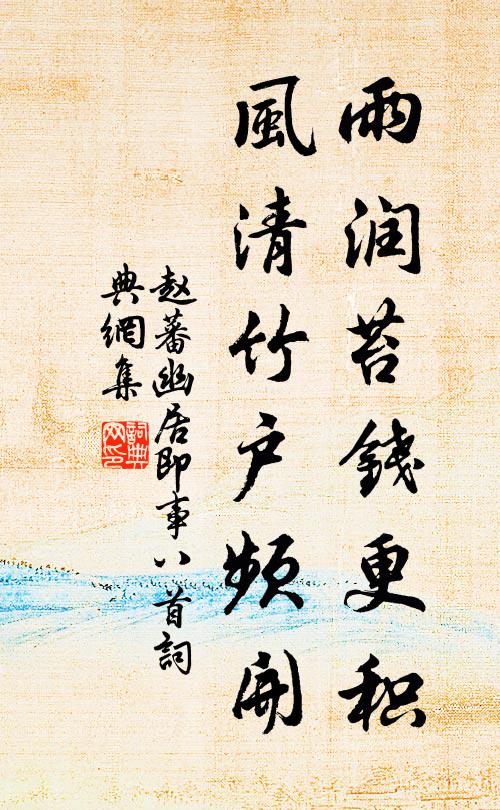 雨润苔錢更积
風清竹户頻開
赵蕃幽居即事八首詞
典網集
詞典